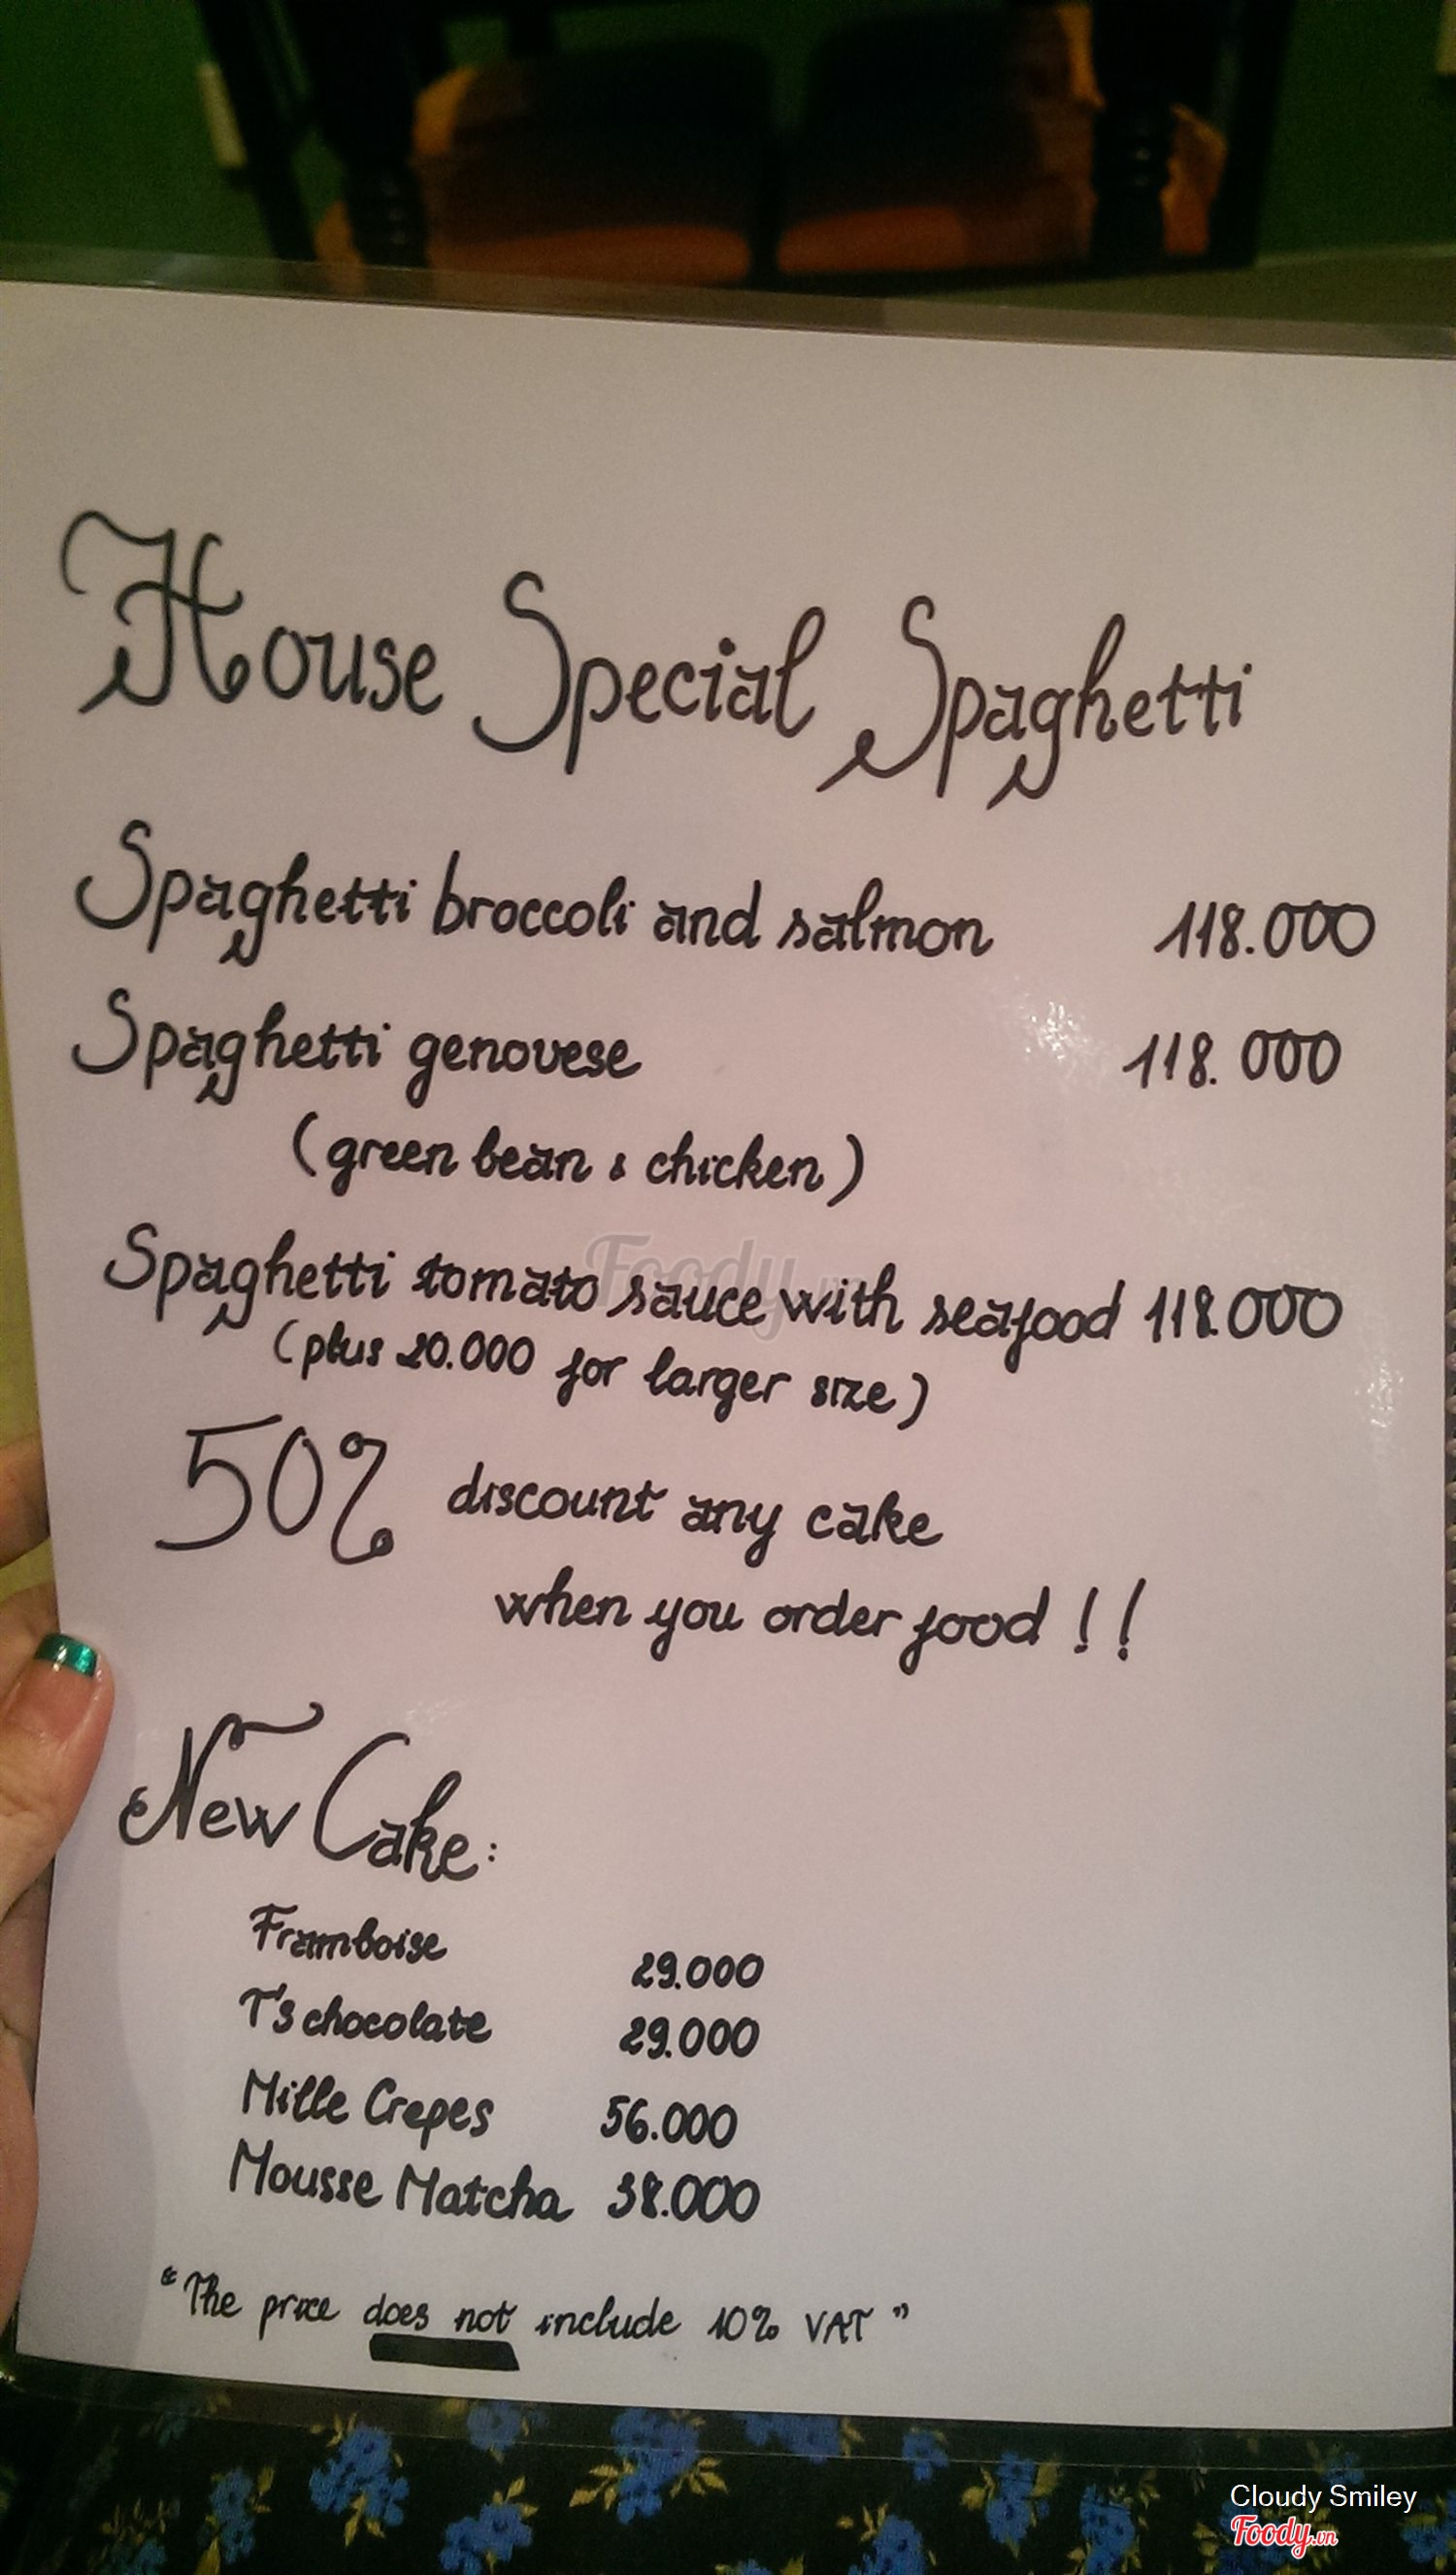 House Special Spaghetti
Spaghetti broccoli and salmon 118.000
Spaghetti genovese 118.000
(green bean & chicken)
Spaghetti tomato sauce with seafood 118.000
(plus 20.000 for larger size)
50% discount any cake
when you order food !!
New Cake:
Framboise 29.000
T's chocolate 29.000
Mille Crepes 56.000
Mousse Matcha 38.000
"The price does not include 10% VAT"
Foody.vn
Cloudy Smiley
Foody.vn